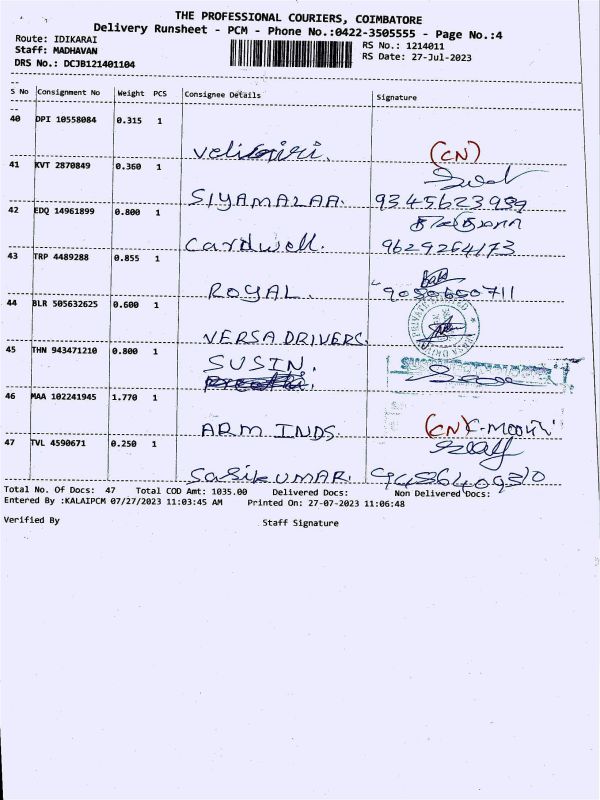 THE PROFESSIONAL COURIERS, COIMBATORE
Delivery Runsheet - PCM - Phone No.:0422-3505555 - Page No.:4
Route: IDIKARAI
RS No.: 1214011
Staff: MADHAVAN
RS Date: 27-Jul-2023
DRS No.: DCJB121401104
S No Consignment No Weight PCS Consignee Details Signature
40 DPI 10558084 0.315 1
(CN)
41 KVT 2870849 0.360 1
SIYAMALAA. 9345623989
42 EDQ 14961899 0.800 1
Cardwell. 9629264173
43 TRP 4489288 0.855 1
ROYAL. 9050650711
44 BLR 505632625 0.600 1
VERSA DRIVERS.
45 THN 943471210 0.800 1
SUSIN.
46 MAA 102241945 1.770 1
ARM INDS. (CN)
47 TVL 4590671 0.250 1
SASIKUMAR.
Total No. Of Docs: 47 Total COD Amt: 1035.00 Delivered Docs: Non Delivered Docs:
Entered By :KALAIPCM 07/27/2023 11:03:45 AM Printed On: 27-07-2023 11:06:48
Verified By Staff Signature